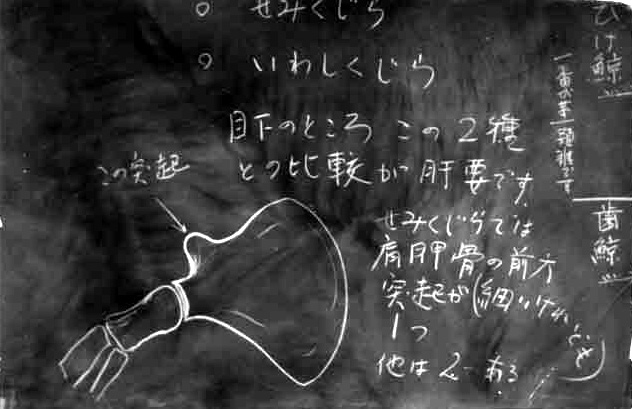 せみくじら
いわしくじら
目下のところ この2種
との比較が肝要です
この突起
せみくじらでは
肩胛骨の前方
突起が(細いけれど)
1つ
他は2つある
ひげ鯨
歯鯨